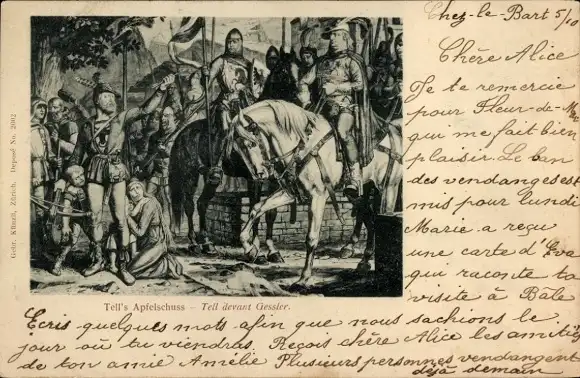 Chez-le-Bart 5/10
Chère Alice
Je te remercie
pour Fleur-de-Mai
qui me fait bien
plaisir. Le ban
des vendanges est
mis pour lundi
Marie a reçu
une carte d'Eva
qui raconte ta
visite à Bâle
Ecris quelques mots afin que nous sachions le
jour où tu viendras. Reçois chère Alice les amitiés
de ton amie Amélie Plusieurs personnes vendangent
déjà demain
Gebr. Künzli, Zürich. Deposed No. 2002
Tell's Apfelschuss – Tell devant Gessler.